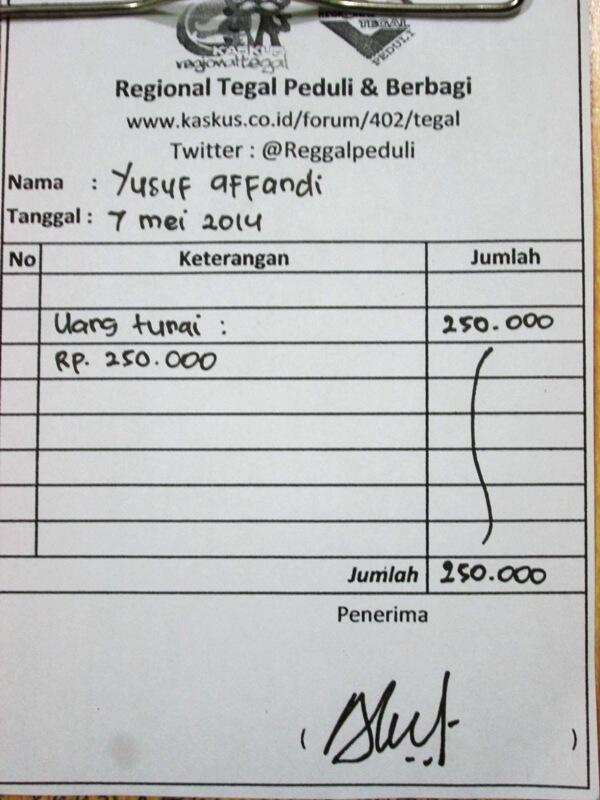 KASKUS
regional tegal
TEGAL
PEDULI
Regional Tegal Peduli & Berbagi
www.kaskus.co.id/forum/402/tegal
Twitter : @Reggalpeduli
Nama : Yusuf affandi
Tanggal : 7 mei 2014
No Keterangan Jumlah
Uang tunai : 250.000
Rp. 250.000
Jumlah 250.000
Penerima
( )